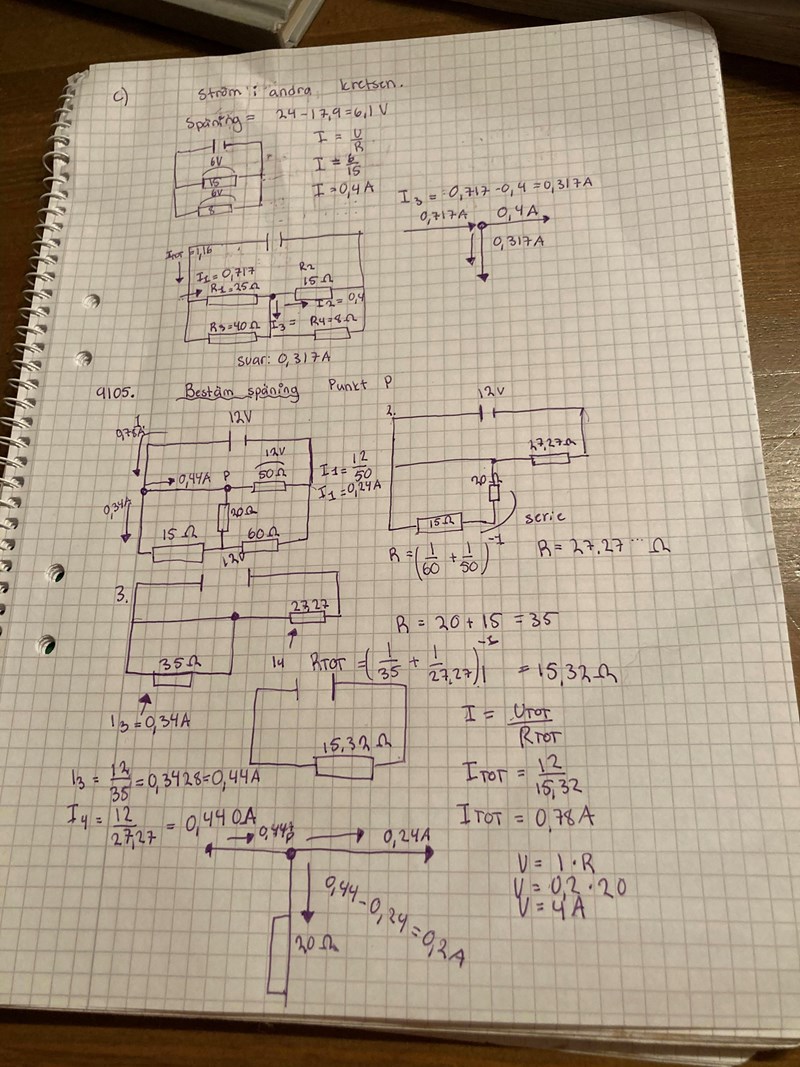 c) Ström i andra kretsen.
Späning = 24 - 17,9 = 6,1 V
I = U/R
I = 6/15
I = 0,4 A
6V
15
6V
8
I3 = 0,717 - 0,4 = 0,317A
0,717A 0,4A
0,317A
ITOT = 1,16
I1 = 0,717
R1 = 25Ω
R2
15Ω
I2 = 0,4
I3 =
R3 = 40Ω R4 = 8Ω
svar: 0,317A
9105. Bestäm späning Punkt P
12V
0,78A
0,44A P
12V
50Ω
0,34A
20Ω
15Ω 60Ω
12V
I1 = 12/50
I1 = 0,24A
2.
12V
27,27Ω
20Ω
15Ω
serie
R = (1/60 + 1/50)^-1 R = 27,27... Ω
3.
27,27
35Ω
I4
I3 = 0,34A
R = 20 + 15 = 35
RTOT = (1/35 + 1/27,27)^-1 = 15,32Ω
15,32Ω
I = UTOT/RTOT
ITOT = 12/15,32
ITOT = 0,78A
I3 = 12/35 = 0,3428 = 0,44A
I4 = 12/27,27 = 0,440A
P 0,24A
0,44 - 0,24 = 0,2A
20Ω
V = I · R
V = 0,2 · 20
V = 4A